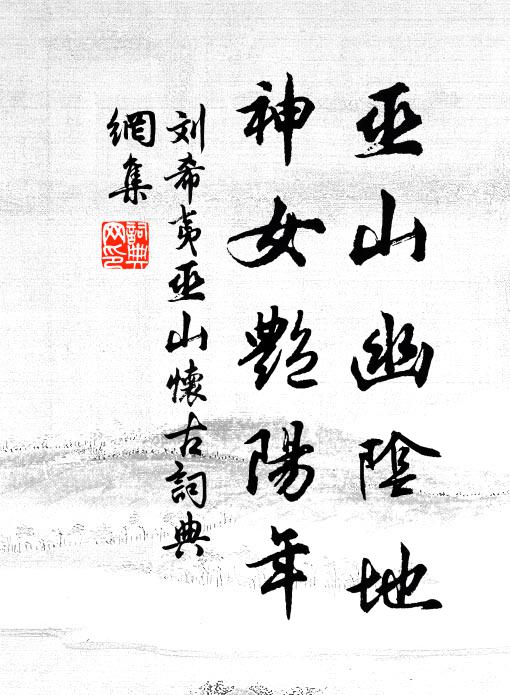 巫山幽陰地
神女艷陽年
刘希夷巫山懷古詞典
網集
詞典
网印